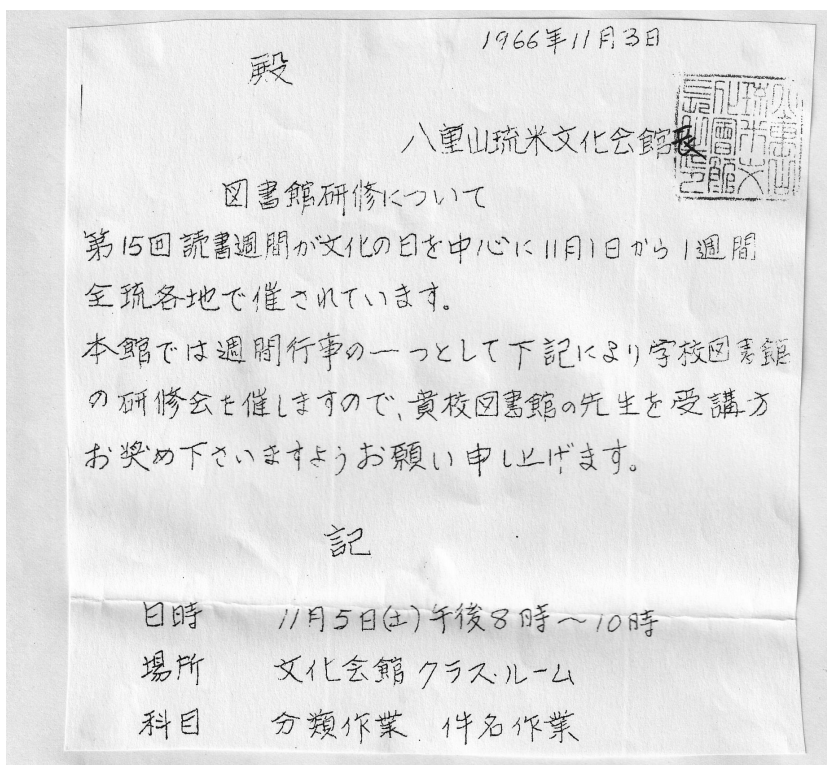 1966年11月3日
殿
八重山琉米文化会館長
図書館研修について
第15回読書週間が文化の日を中心に11月1日から1週間
全琉各地で催されています。
本館では週間行事の一つとして下記により学校図書館
の研修会を催しますので、貴校図書館の先生を受講方
お奨め下さいますようお願い申し上げます。
記
日時 11月5日(土)午後8時〜10時
場所 文化会館クラス・ルーム
科目 分類作業、件名作業